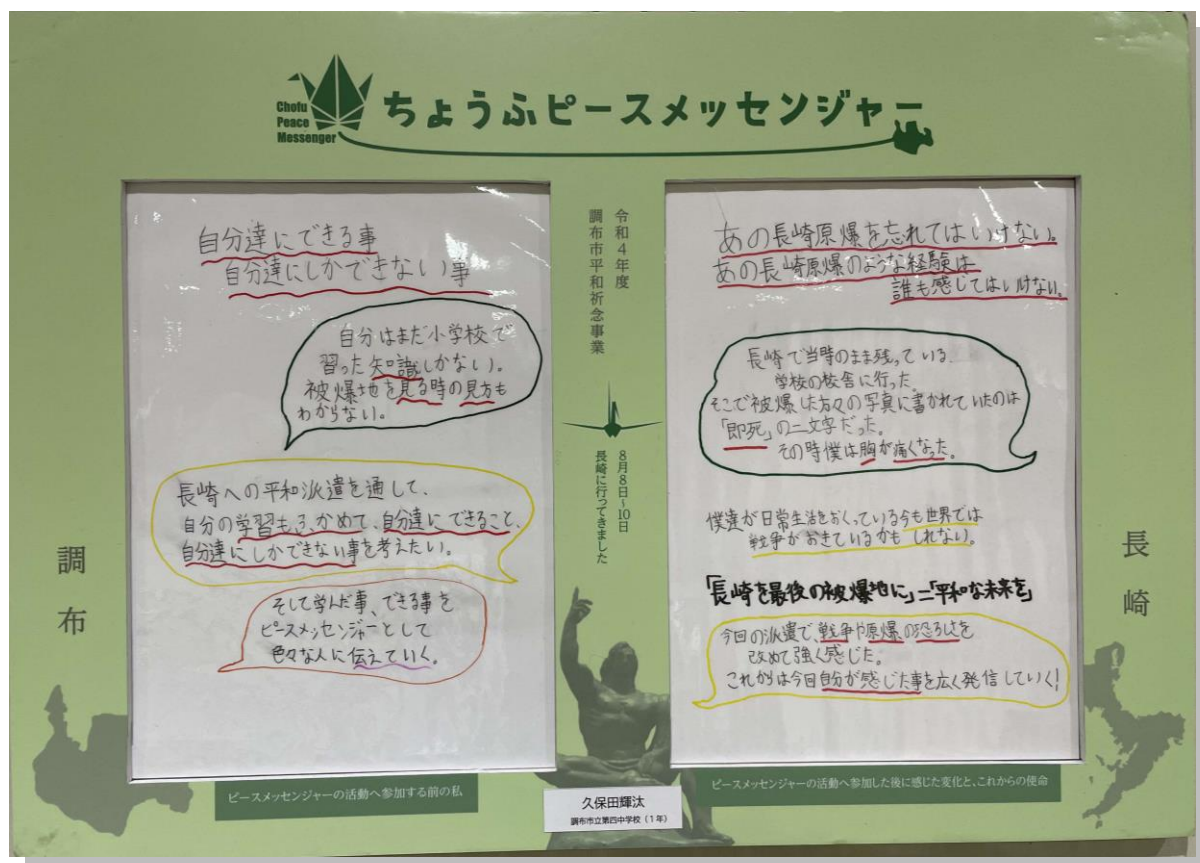 Chofu
Peace
Messenger
ちょうふピースメッセンジャー
自分達にできる事
自分達にしかできない事
自分はまだ小学校で
習った知識しかない。
被爆地を見る時の見方も
わからない。
長崎への平和派遣を通して、
自分の学習もふかめて、自分達にできること、
自分達にしかできない事を考えたい。
そして学んだ事、できる事を
ピースメッセンジャーとして
色々な人に伝えていく。
調布
ピースメッセンジャーの活動へ参加する前の私
令和4年度
調布市平和祈念事業
8月8日~10日
長崎に行ってきました
久保田輝汰
調布市立第四中学校(1年)
あの長崎原爆を忘れてはいけない。
あの長崎原爆のような経験は
誰も感じてはいけない。
長崎で当時のまま残っている、
学校の校舎に行った。
そこで被爆した方々の写真に書かれていたのは
「即死」の二文字だった。
その時僕は胸が痛くなった。
僕達が日常生活をおくっている今も世界では
戦争がおきているかもしれない。
「長崎を最後の被爆地に」=「平和な未来を」
今回の派遣で、戦争や原爆の恐ろしさを
改めて強く感じた。
これからは今日自分が感じた事を広く発信していく!
長崎
ピースメッセンジャーの活動へ参加した後に感じた変化と、これからの使命